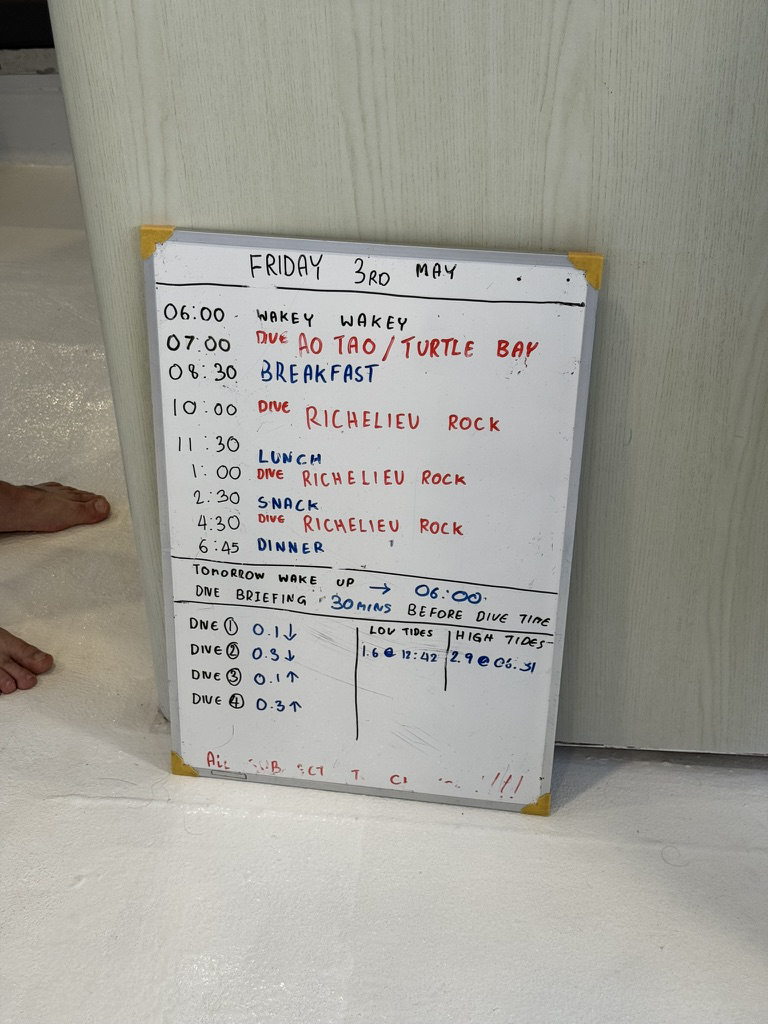 FRIDAY 3RD MAY
06:00 WAKEY WAKEY
07:00 DIVE AO TAO / TURTLE BAY
08:30 BREAKFAST
10:00 DIVE RICHELIEU ROCK
11:30 LUNCH
1:00 DIVE RICHELIEU ROCK
2:30 SNACK
4:30 DIVE RICHELIEU ROCK
6:45 DINNER
TOMORROW WAKE UP → 06:00
DIVE BRIEFING 30MINS BEFORE DIVE TIME
DIVE ① 0.1↓
DIVE ② 0.3↓
DIVE ③ 0.1↑
DIVE ④ 0.3↑
LOW TIDES
1.6 @ 12:42
HIGH TIDES
2.9 @
ALL